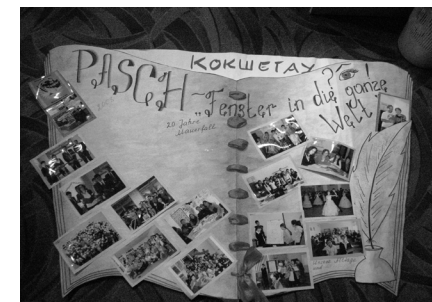 КОКШЕТАУ
PASCH -
„Fenster in die ganze
Welt"
20 Jahre
Mauerfall